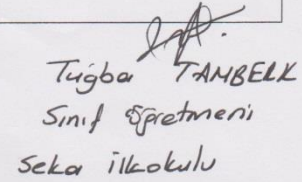 Tuğba TAMBERK
Sınıf Öğretmeni
Seka ilkokulu